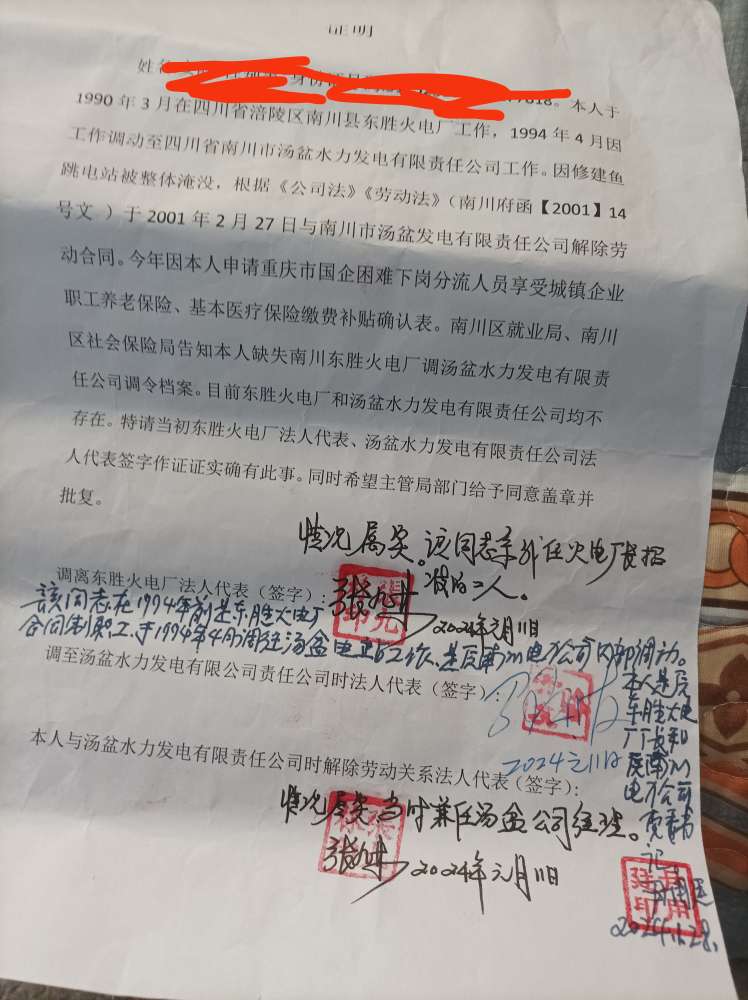 证明
7818。本人于
1990 年 3 月在四川省涪陵区南川县东胜火电厂工作，1994 年 4 月因
工作调动至四川省南川市汤盆水力发电有限责任公司工作。因修建鱼
跳电站被整体淹没，根据《公司法》《劳动法》（南川府函【2001】14
号文 ）于 2001 年 2 月 27 日与南川市汤盆发电有限责任公司解除劳
动合同。今年因本人申请重庆市国企困难下岗分流人员享受城镇企业
职工养老保险、基本医疗保险缴费补贴确认表。南川区就业局、南川
区社会保险局告知本人缺失南川东胜火电厂调汤盆水力发电有限责
任公司调令档案。目前东胜火电厂和汤盆水力发电有限责任公司均不
存在。特请当初东胜火电厂法人代表、汤盆水力发电有限责任公司法
人代表签字作证证实确有此事。同时希望主管局部门给予同意盖章并
批复。
情况属实。该同志系外任火电厂长招
的工人。
调离东胜火电厂法人代表（签字）：
2024年元月11日
该同志在1994年前是东胜火电厂
合同制职工，于1994年4月调往汤盆电站工作，是原南川电力公司内部调动。
调至汤盆水力发电有限公司责任公司时法人代表（签字）：
2024元11日
本人是原
东胜火电
厂厂长和
原南川
电力公司
党委书
记
2024.1.28.
本人与汤盆水力发电有限责任公司时解除劳动关系法人代表（签字）：
情况属实，当时兼任汤盆公司经理。
2024年元月11日